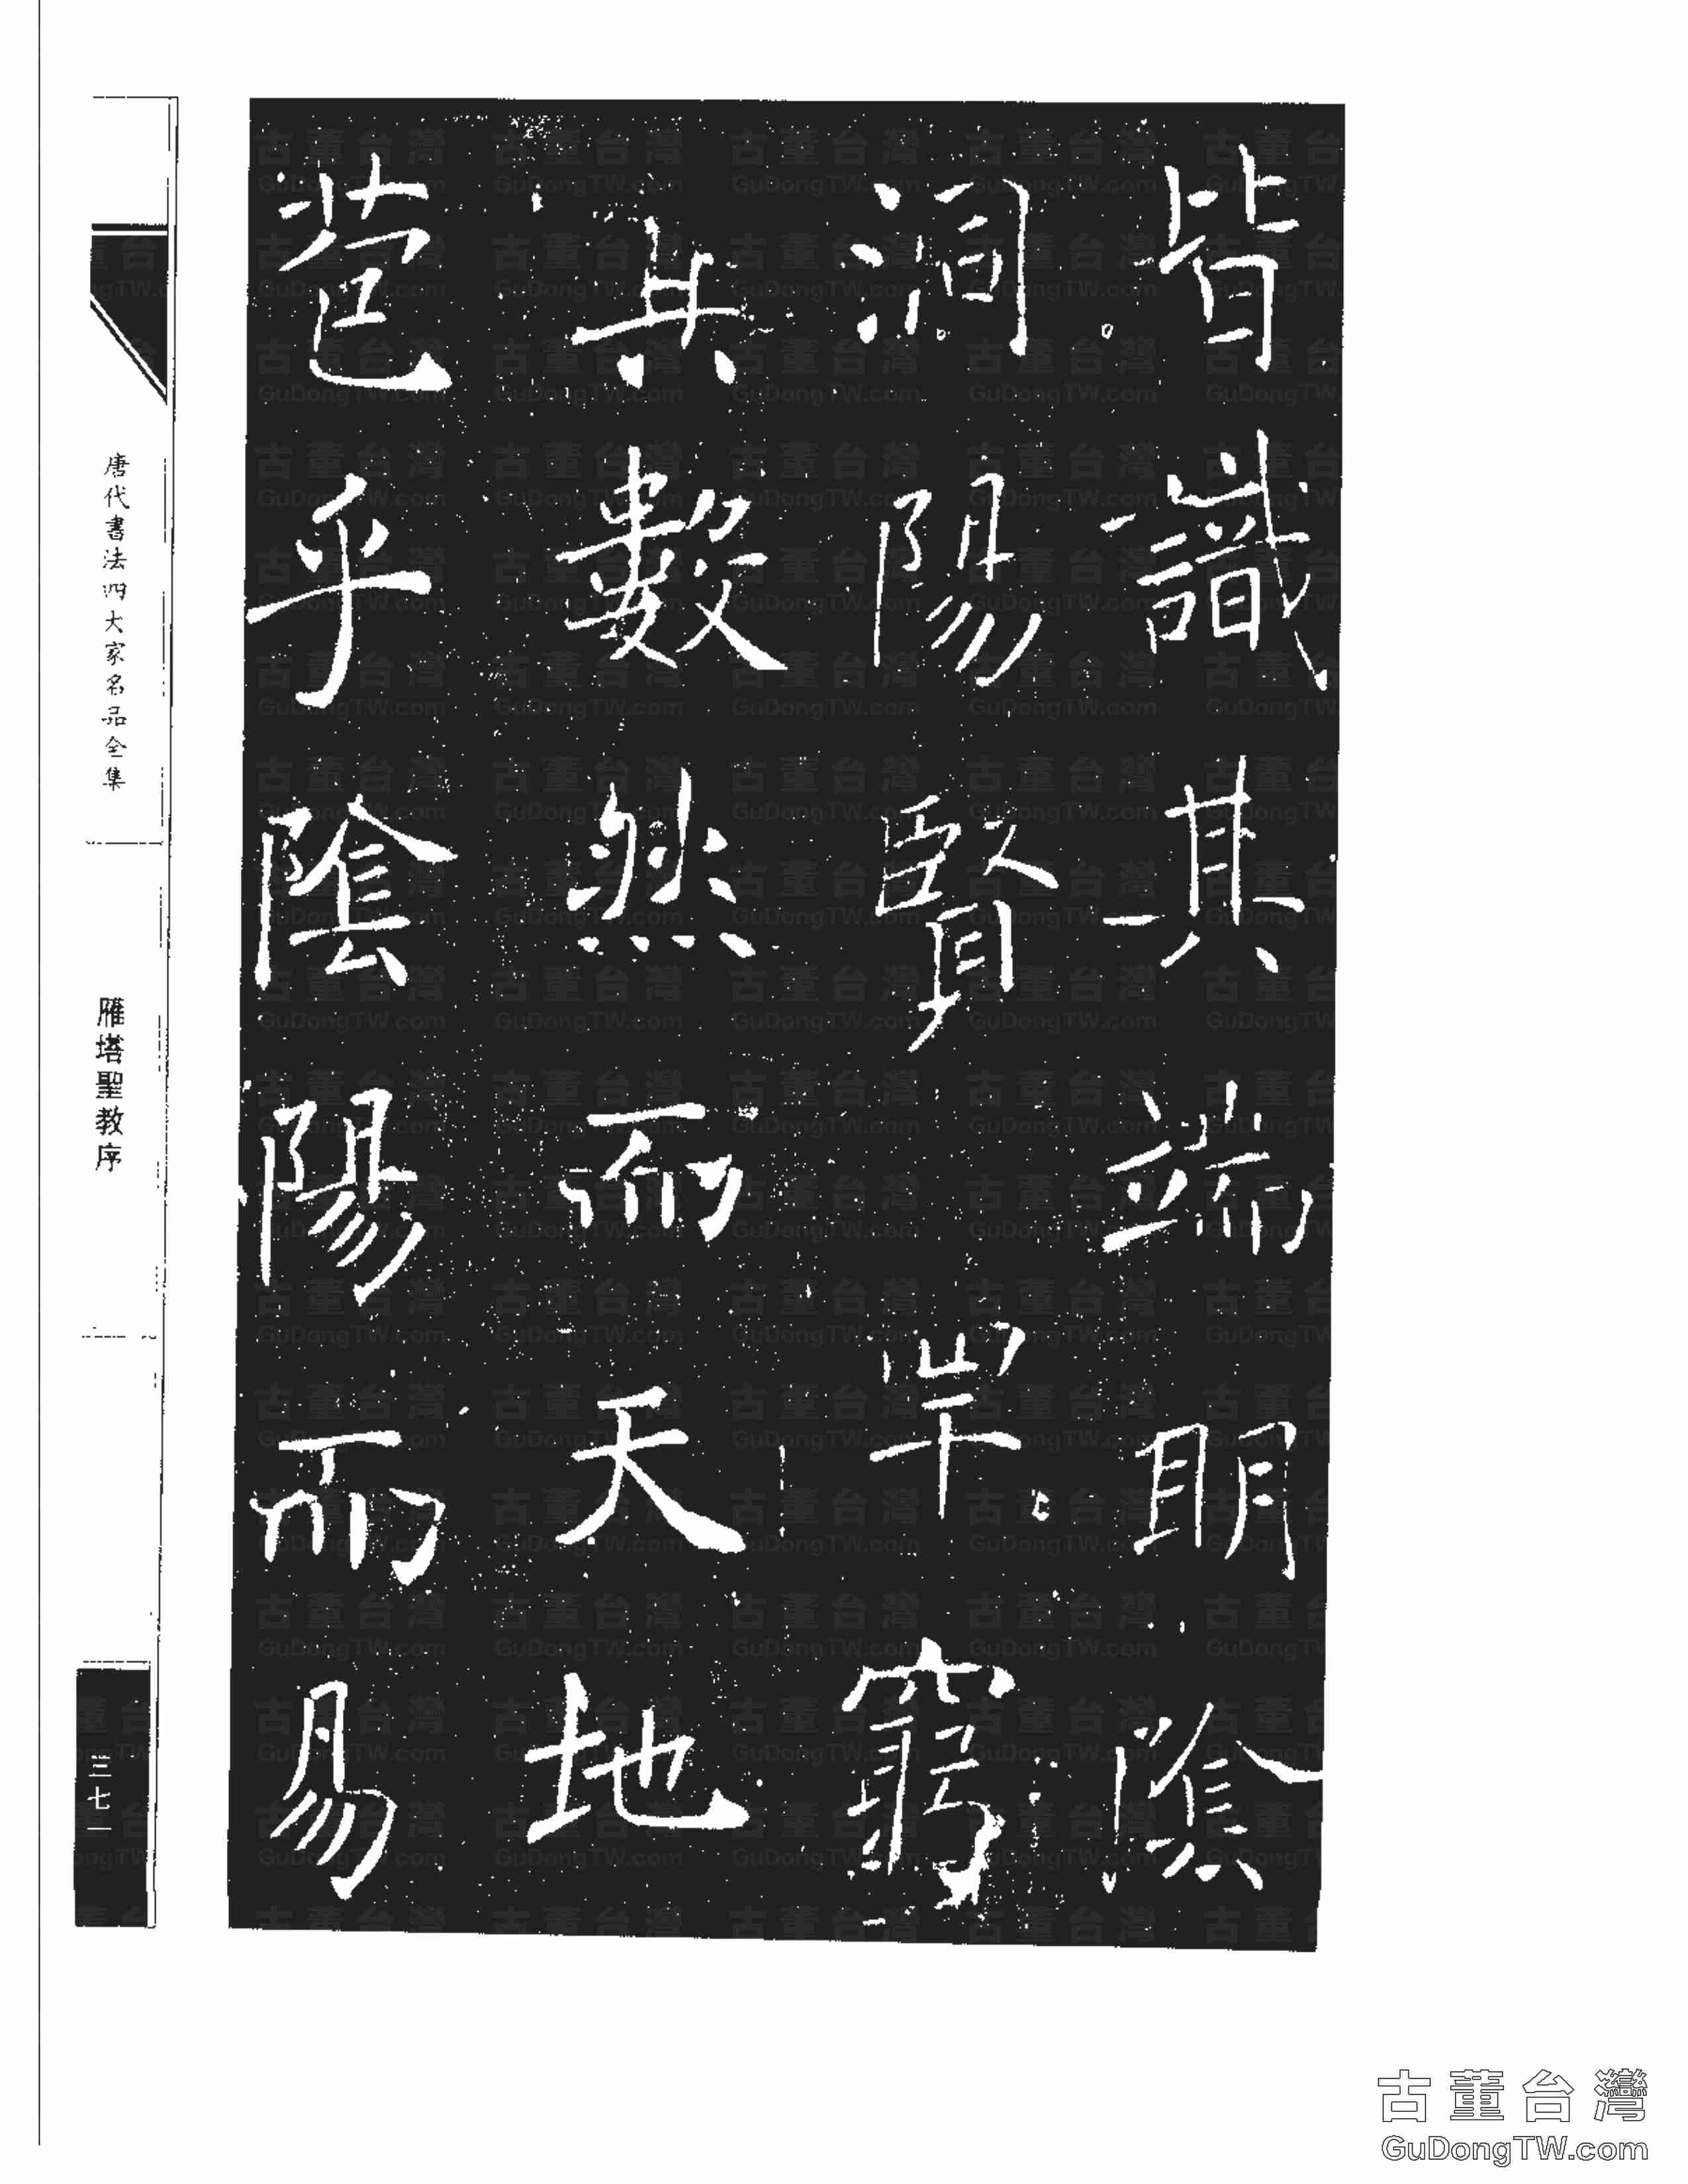 皆識其端明陰
洞陽賢罕窮
其數然而天地
苞乎陰陽而易
唐代書法四大家名品全集
雁塔聖教序
三七一
古董台灣
GuDongTW.com